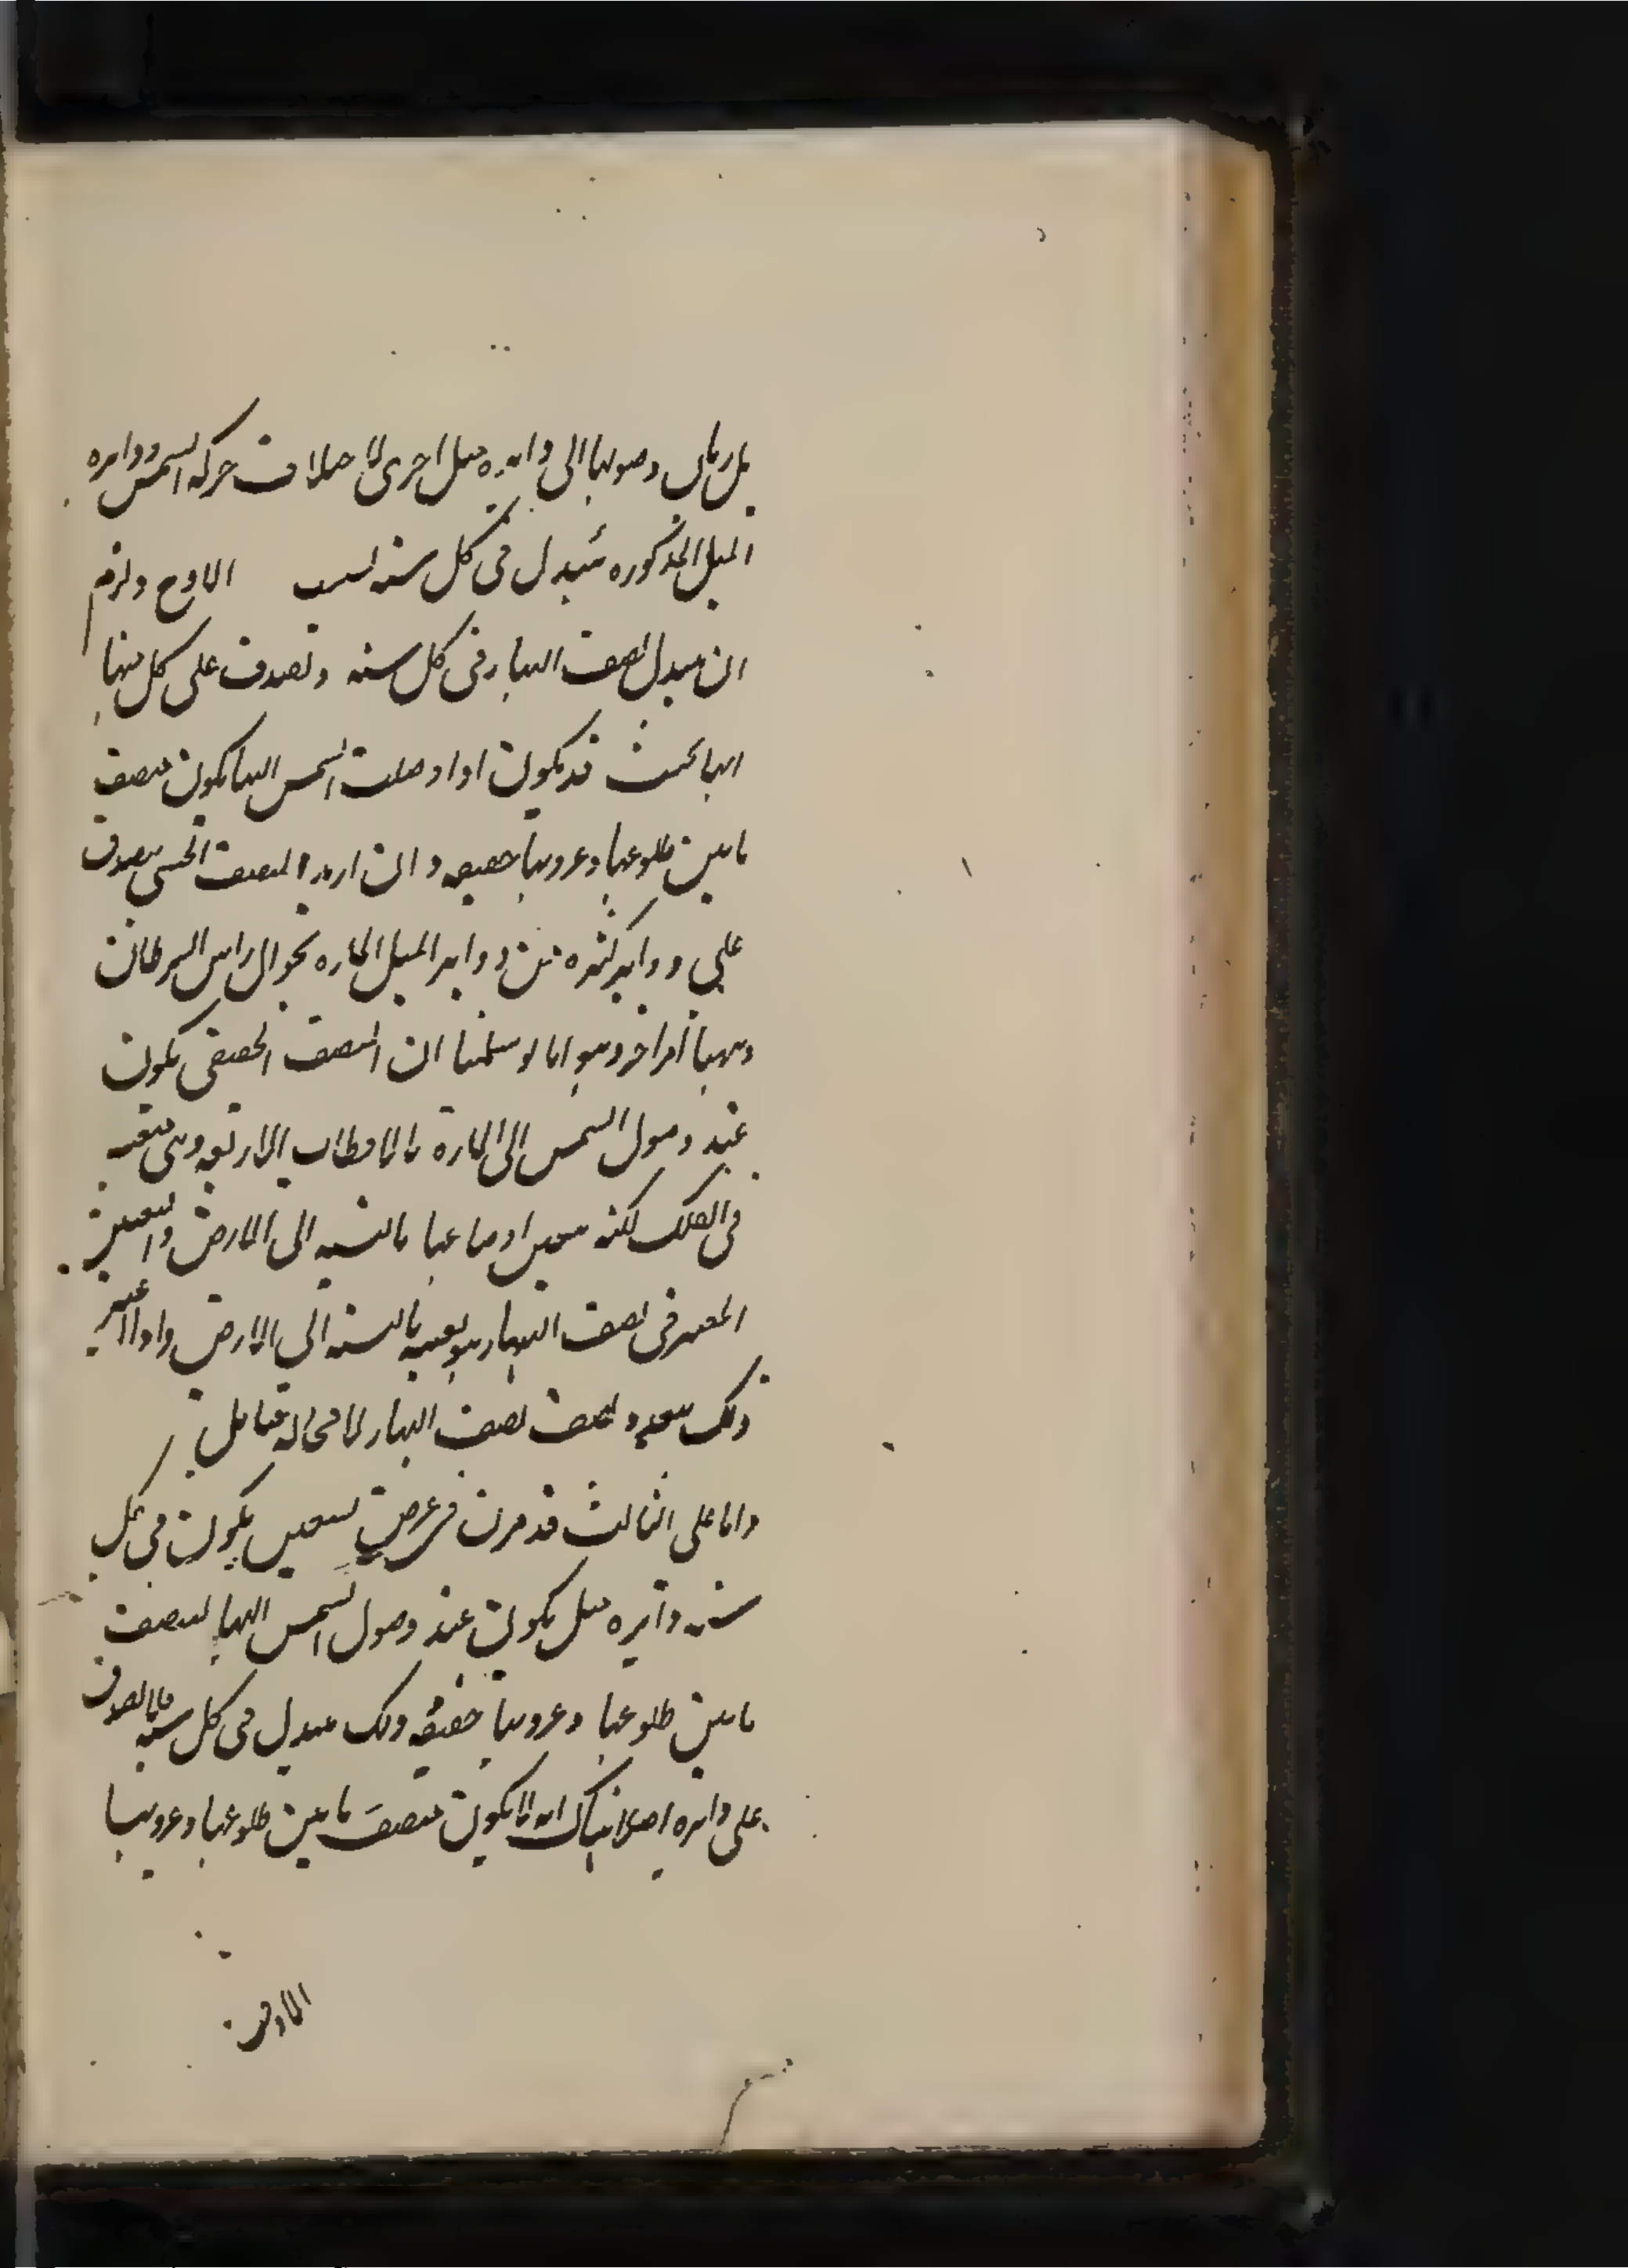 بل زمان وصولها الى دايره ميل اخرى لاختلاف حركه الشمس ودايره
الميل المذكوره تتبدل فى كل سنه بسبب الاوج ولزم
ان يتبدل نصف النهار فى كل سنه وتصدق على كل منها
انها بحيث قد يكون اذا وصلت الشمس اليها يكون منتصف
ما بين طلوعها وغروبها حقيقه وان اريد المنتصف الحسى يصدق
على دواير كثيره من دواير الميل الماره بحوالى راس السرطان
وههنا امر اخر وهو انا لو سلمنا ان المنتصف الحقيقى يكون
عند وصول الشمس الى الماره بالاقطاب الاربعه وهى متعينه
فى الفلك لكنه يتغير اوضاعها بالنسبه الى الارض والتعيين
المعتبر فى نصف النهار هو تعينه بالنسبه الى الارض واذا اعتبر
ذلك يتعدد نصف النهار لا محاله فتامل
واما على الثالث فلان فى عرض تسعين يكون فى كل
سنه دائره ميل يكون عند وصول الشمس اليها لمنتصف
ما بين طلوعها وغروبها حقيقه وتلك يتبدل فى كل سنه فلا يصدق
على دايره اصلا هناك انه لا يكون منتصف ما بين طلوعها وغروبها